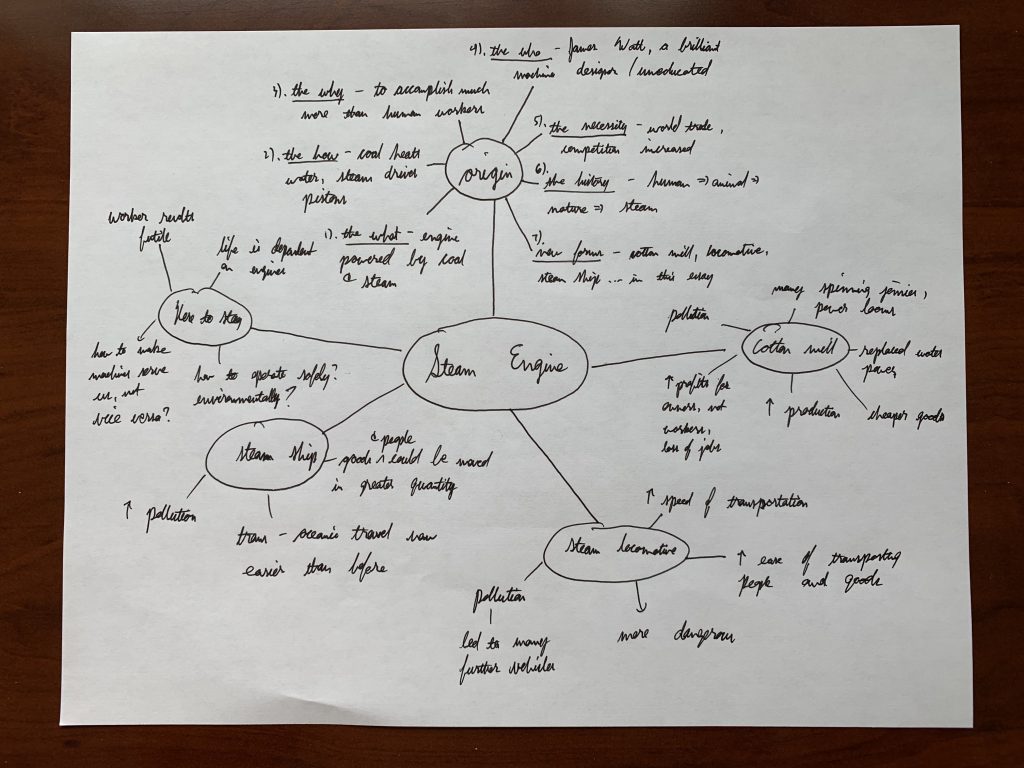 4). the who - James Watt, a brilliant
machine designer / uneducated
3). the why - to accomplish much
more than human workers
5). the necessity - world trade,
competition increased
2). the how - coal heats
water, steam drives
pistons
origin
6). the history - human => animal =>
nature => steam
1). the what - engine
powered by coal
& steam
7). new forms - cotton mill, locomotive,
steam ship ... in this essay
worker revolts
futile
life is dependent
on engines
Here to stay
how to make
machines serve
us, not
vice versa?
how to operate safely?
environmentally?
Steam Engine
many spinning jennies,
power looms
pollution
Cotton mill
replaced water
power
↑ profits for
owners, not
workers,
loss of jobs
↑ production
cheaper goods
steam ship
& people
goods ^ could be moved
in greater quantity
↑ pollution
trans-oceanic travel was
easier than before
steam locomotive
↑ speed of transportation
↑ ease of transporting
people and goods
pollution
led to many
further vehicles
more dangerous